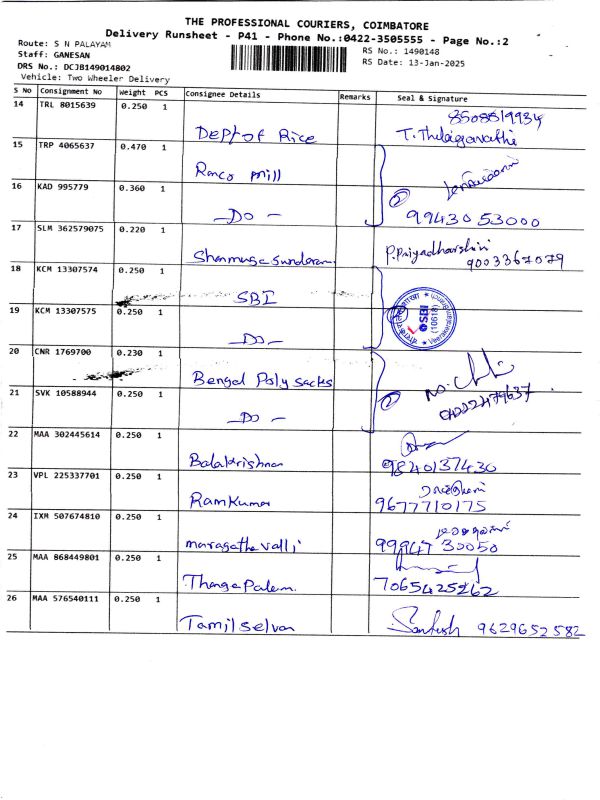 THE PROFESSIONAL COURIERS, COIMBATORE
Delivery Runsheet - P41 - Phone No.:0422-3505555 - Page No.:2
Route: S N PALAYAM
Staff: GANESAN
DRS No.: DCJB149014802
Vehicle: Two Wheeler Delivery
RS No.: 1490148
RS Date: 13-Jan-2025
S No Consignment No Weight PCS Consignee Details Remarks Seal & Signature
14 TRL 8015639 0.250 1 Dept of Rice 8508819934
T. Thilaganathi
15 TRP 4065637 0.470 1 Ranco mill
16 KAD 995779 0.360 1 —Do— 2 99430 53000
17 SLM 362579075 0.220 1 Shanmuga sundaram P. Priyadharshini
9003367079
18 KCM 13307574 0.250 1 SBI
19 KCM 13307575 0.250 1 —Do— SBI
20 CNR 1769700 0.230 1 Bengal Poly sacks
21 SVK 10588944 0.250 1 —Do— 2
22 MAA 302445614 0.250 1 Balakrishnan 9840137430
23 VPL 225337701 0.250 1 Ramkumar 9677710175
24 IXM 507674810 0.250 1 maragatha valli 99947 30050
25 MAA 868449801 0.250 1 Thanga Palam. 7065425262
26 MAA 576540111 0.250 1 Tamil selvan Santhosh 9629652582